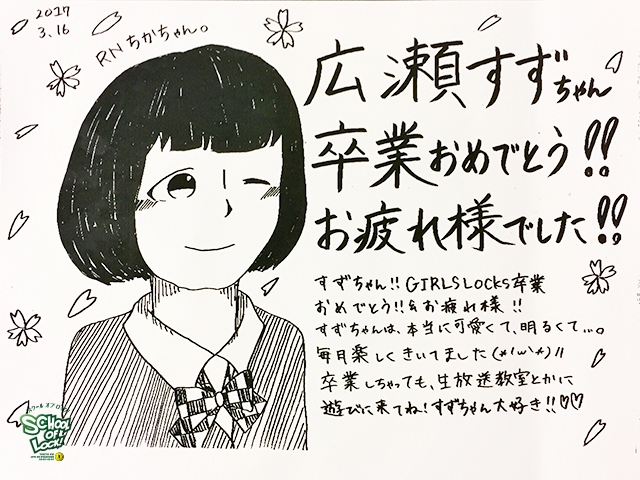 2017
3.16
RNちかちゃん。
広瀬すずちゃん
卒業おめでとう!!
お疲れ様でした!!
すずちゃん!! GIRLS LOCKS卒業
おめでとう!! & お疲れ様!!
すずちゃんは、本当に可愛くて、明るくて…。
毎日楽しくきいてました(*'ω'*)//
卒業しちゃっても、生放送教室とかに
遊びに来てね! すずちゃん大好き!!♡♡
スクール オブ ロック
SCHOOL
OF
LOCK!